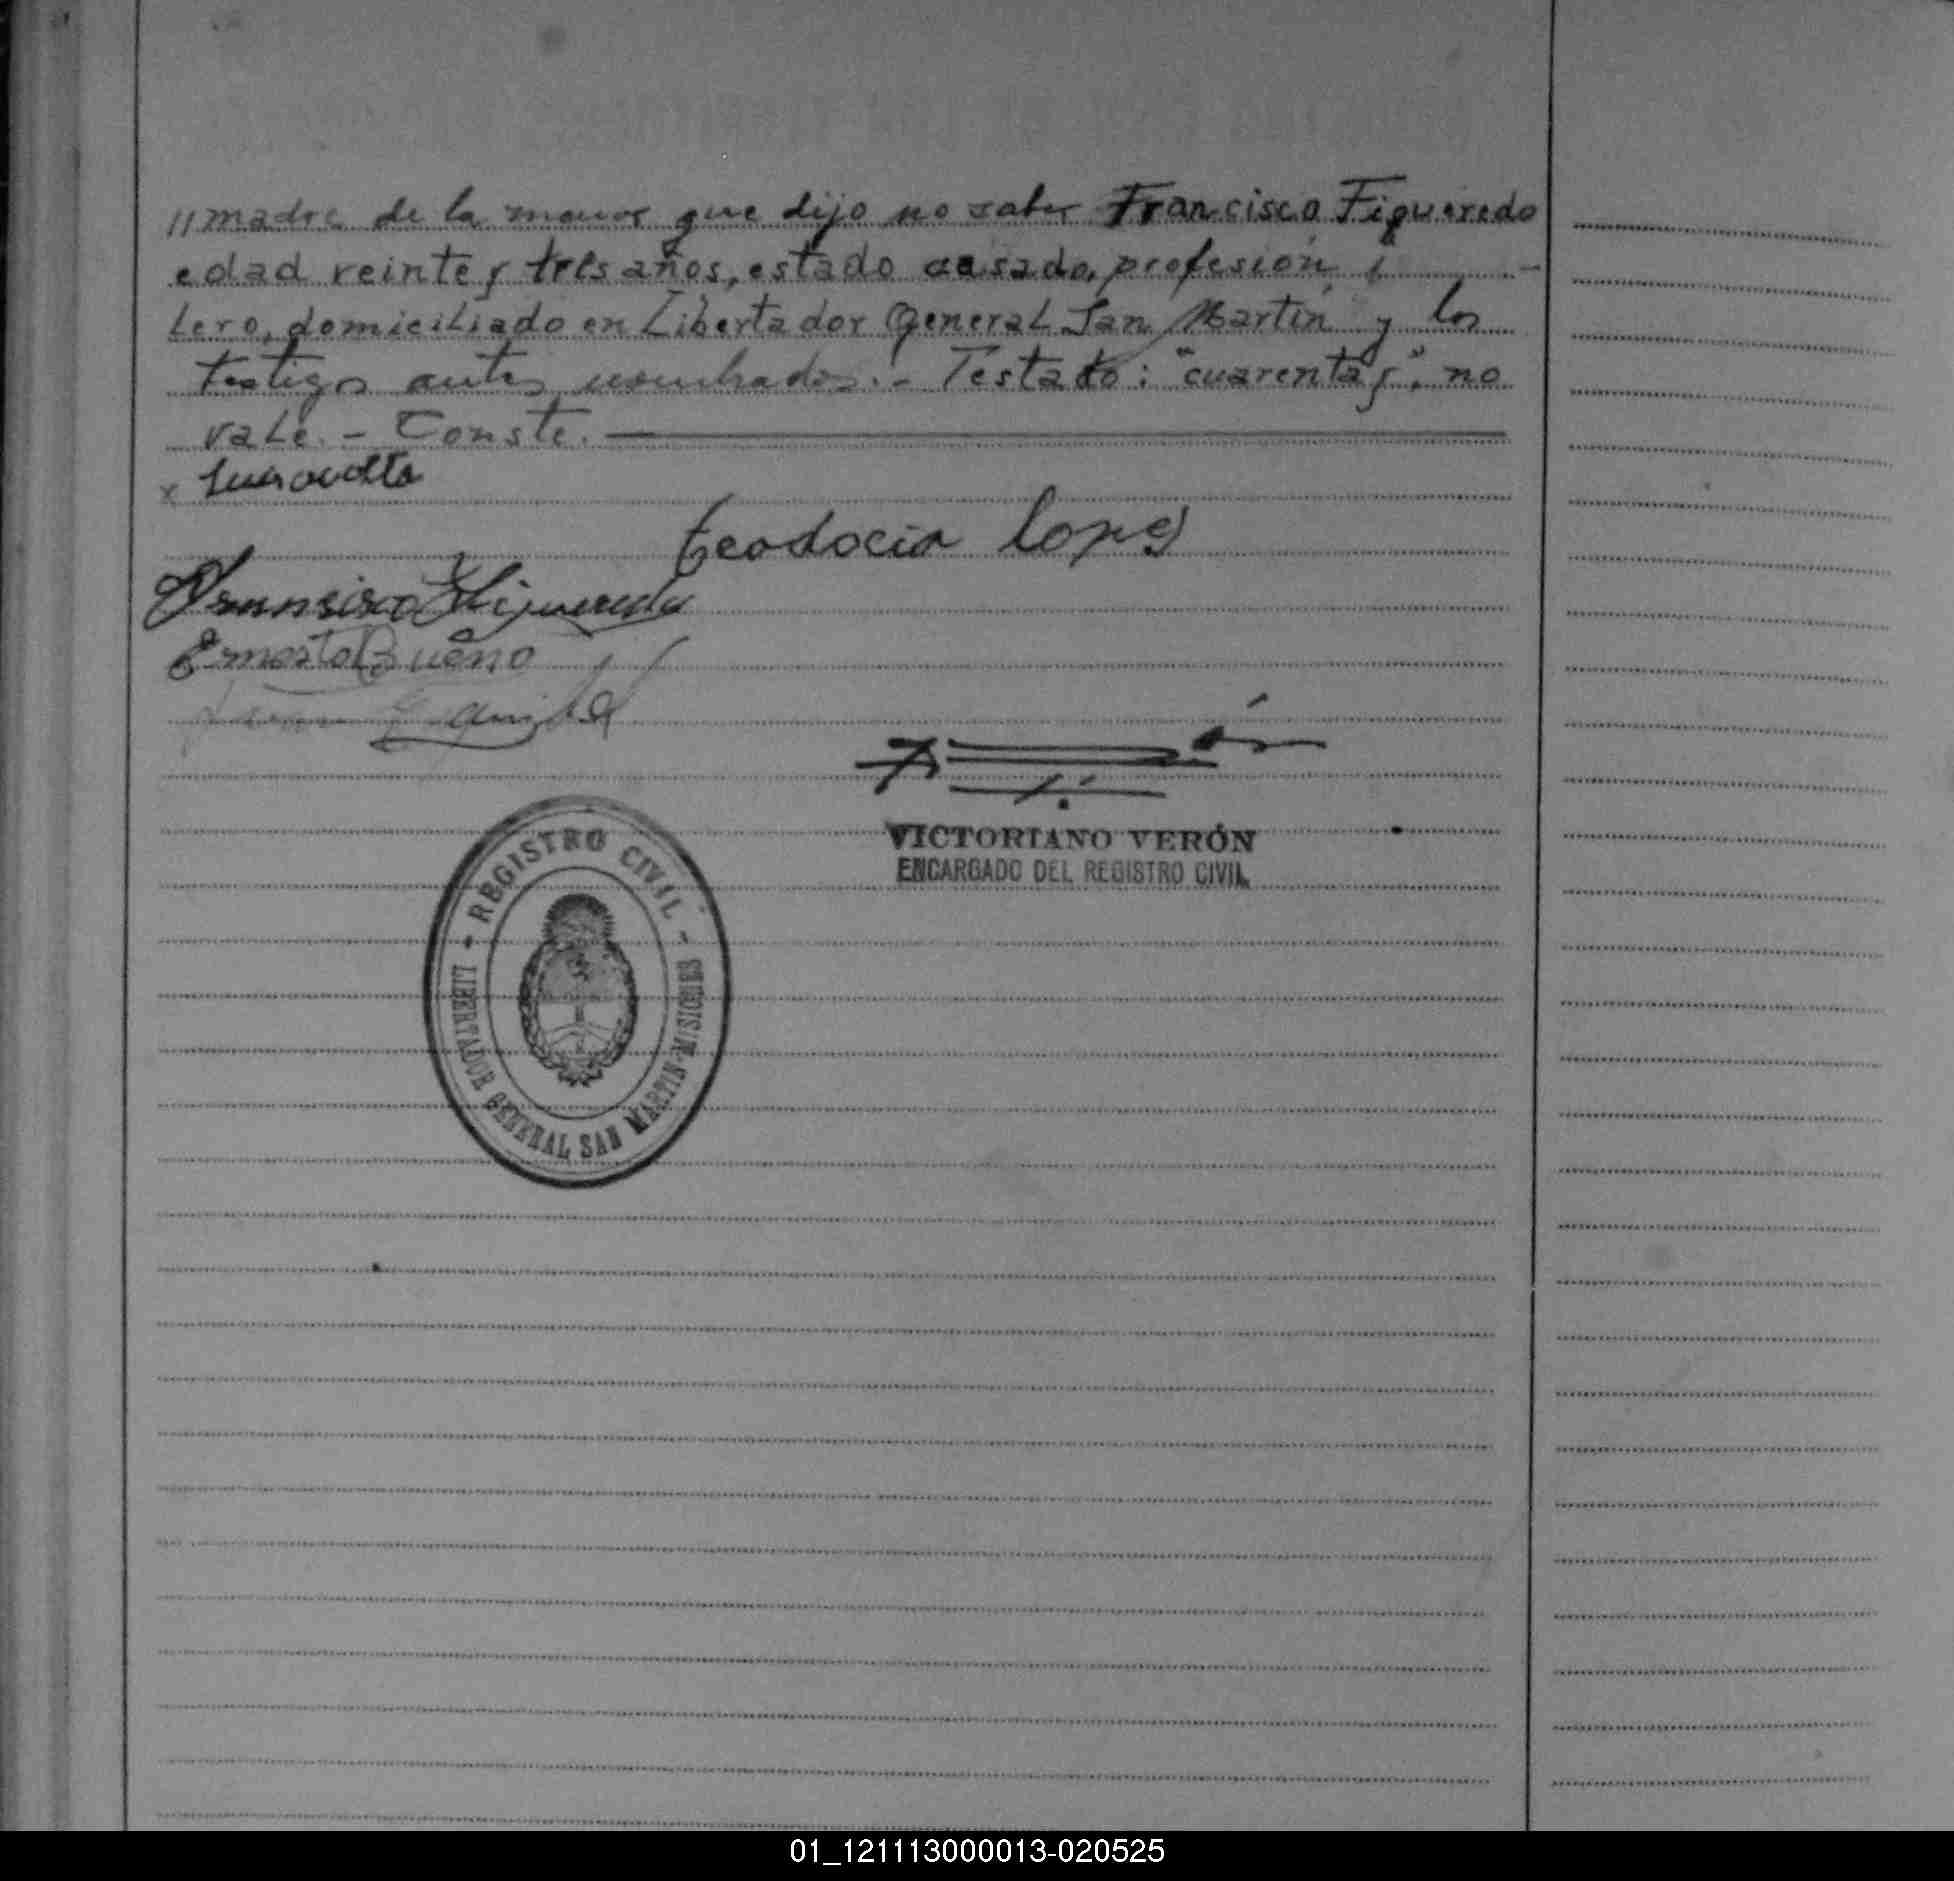 //madre de la menor que dijo no saber Francisco Figueredo
edad veinte y tres años, estado casado, profesión
lero, domiciliado en Libertador General San Martín y los
testigos antes nombrados.- Testado: "cuarenta y", no
vale.- Conste.
x
teodocia lopez
Francisco Figueredo
Ernesto Bueno
VICTORIANO VERÓN
ENCARGADO DEL REGISTRO CIVIL
- REGISTRO CIVIL -
LIBERTADOR GENERAL SAN MARTIN-MISIONES
01_121113000013-020525